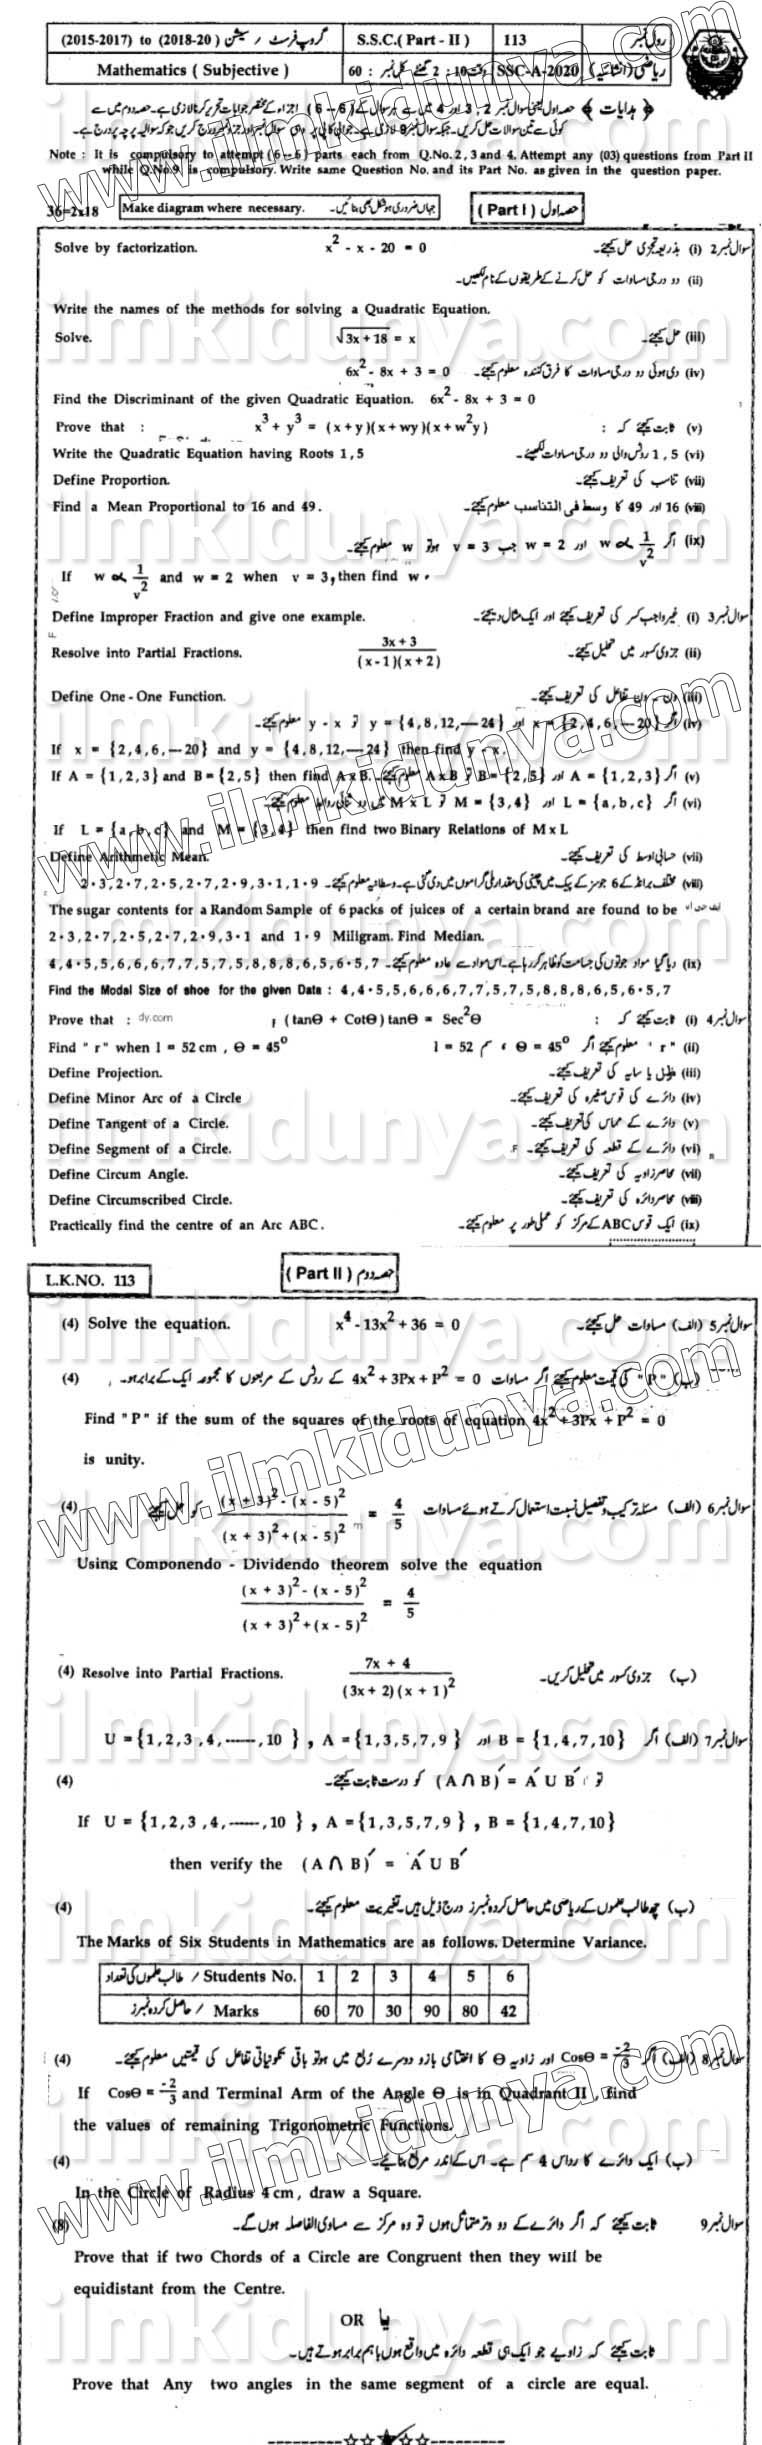 (2015-2017) to (2018-20) گروپ فرسٹ / سیشن S.S.C.( Part - II ) 113 رول نمبر
Mathematics ( Subjective ) وقت 2:10 گھنٹے کل نمبر : 60 SSC-A-2020 ریاضی (انشائیہ)
Note : It is compulsory to attempt (6 – 6) parts each from Q.No. 2 , 3 and 4. Attempt any (03) questions from Part II
while Q.No.9 is compulsory. Write same Question No. and its Part No. as given in the question paper.
36=2x18 Make diagram where necessary. جہاں ضروری ہو شکل بھی بنائیں۔ ( Part I ) حصہ اول
Solve by factorization. x² - x - 20 = 0 سوال نمبر 2 (i) بذریعہ تجزی حل کیجئے۔
(ii) دو درجی مساوات کو حل کرنے کے طریقوں کے نام لکھیں۔
Write the names of the methods for solving a Quadratic Equation.
Solve. √3x + 18 = x (iii) حل کیجئے۔
6x² - 8x + 3 = 0 (iv) دی ہوئی دو درجی مساوات کا فرق کنندہ معلوم کیجئے۔
Find the Discriminant of the given Quadratic Equation. 6x² - 8x + 3 = 0
Prove that : x³ + y³ = (x + y)(x + wy)(x + w²y) (v) ثابت کیجئے کہ :
Write the Quadratic Equation having Roots 1 , 5 (vi) 1 , 5 روٹس والی دو درجی مساوات لکھیئے۔
Define Proportion. (vii) تناسب کی تعریف کیجئے۔
Find a Mean Proportional to 16 and 49 . (viii) 16 اور 49 کا وسط فی التناسب معلوم کیجئے۔
(ix) اگر w ∝ 1/v² اور w = 2 جب v = 3 ہو تو w معلوم کیجئے۔
If w ∝ 1/v² and w = 2 when v = 3 , then find w .
Define Improper Fraction and give one example. سوال نمبر 3 (i) غیر واجب کسر کی تعریف کیجئے اور ایک مثال دیجئے۔
Resolve into Partial Fractions. 3x + 3 / (x - 1)(x + 2) (ii) جزوی کسور میں تحلیل کیجئے۔
Define One - One Function. (iii) ون ۔ ون تفاعل کی تعریف کیجئے۔
(iv) اگر x = {2 , 4 , 6 , — 20} اور y = {4 , 8 , 12 , — 24} تو y - x معلوم کیجئے۔
If x = {2 , 4 , 6 , — 20} and y = {4 , 8 , 12 , — 24} then find y - x .
If A = {1 , 2 , 3} and B = {2 , 5} then find A x B. (v) اگر A = {1 , 2 , 3} اور B = {2 , 5} تو A x B معلوم کیجئے۔
(vi) اگر L = {a , b , c} اور M = {3 , 4} تو M x L کے دو ثنائی روابط معلوم کیجئے۔
If L = {a , b , c} and M = {3 , 4} then find two Binary Relations of M x L
Define Arithmetic Mean. (vii) حسابی اوسط کی تعریف کیجئے۔
(viii) مختلف برانڈ کے 6 جوسز کے پیک میں چینی کی مقدار ملی گراموں میں دی گئی ہے۔ وسطانیہ معلوم کیجئے۔ 2·3 , 2·7 , 2·5 , 2·7 , 2·9 , 3·1 , 1·9
The sugar contents for a Random Sample of 6 packs of juices of a certain brand are found to be
2·3 , 2·7 , 2·5 , 2·7 , 2·9 , 3·1 and 1·9 Miligram. Find Median.
(ix) دیا گیا مواد جوتوں کی جسامت کو ظاہر کر رہا ہے۔ اس مواد سے عادہ معلوم کیجئے۔ 4 , 4·5 , 5 , 6 , 6 , 6 , 7 , 7 , 5 , 7 , 5 , 8 , 8 , 8 , 6 , 5 , 6·5 , 7
Find the Modal Size of shoe for the given Data : 4 , 4·5 , 5 , 6 , 6 , 6 , 7 , 7 , 5 , 7 , 5 , 8 , 8 , 8 , 6 , 5 , 6·5 , 7
Prove that : dy.com , (tanθ + Cotθ) tanθ = Sec²θ سوال نمبر 4 (i) ثابت کیجئے کہ :
Find " r " when l = 52 cm , θ = 45⁰ (ii) " r " معلوم کیجئے اگر θ = 45⁰ ، سم l = 52
Define Projection. (iii) ظل یا سایہ کی تعریف کیجئے۔
Define Minor Arc of a Circle (iv) دائرے کی قوس صغیرہ کی تعریف کیجئے۔
Define Tangent of a Circle. (v) دائرے کے مماس کی تعریف کیجئے۔
Define Segment of a Circle. (vi) دائرے کے قطعہ کی تعریف کیجئے۔
Define Circum Angle. (vii) محاصر زاویہ کی تعریف کیجئے۔
Define Circumscribed Circle. (viii) محاصر دائرہ کی تعریف کیجئے۔
Practically find the centre of an Arc ABC . (ix) ایک قوس ABC کے مرکز کو عملی طور پر معلوم کیجئے۔
L.K.NO. 113 ( Part II ) حصہ دوم
(4) Solve the equation. x⁴ - 13x² + 36 = 0 سوال نمبر 5 (الف) مساوات حل کیجئے۔
(4) (ب) " P " کی قیمت معلوم کیجئے اگر مساوات 4x² + 3Px + P² = 0 کے روٹس کے مربعوں کا مجموعہ ایک کے برابر ہو۔
Find " P " if the sum of the squares of the roots of equation 4x² + 3Px + P² = 0
is unity.
(4) سوال نمبر 6 (الف) مسئلہ ترکیب و تفصیل نسبت استعمال کرتے ہوئے مساوات (x + 3)² - (x - 5)² / (x + 3)² + (x - 5)² = 4/5 کو حل کیجئے
Using Componendo - Dividendo theorem solve the equation
(x + 3)² - (x - 5)² / (x + 3)² + (x - 5)² = 4/5
(4) Resolve into Partial Fractions. 7x + 4 / (3x + 2)(x + 1)² (ب) جزوی کسور میں تحلیل کریں۔
سوال نمبر 7 (الف) اگر U = {1 , 2 , 3 , 4 , ------ , 10 } , A = {1 , 3 , 5 , 7 , 9 } اور B = {1 , 4 , 7 , 10}
(4) تو (A ∩ B)′ = A′ U B′ کو درست ثابت کیجئے۔
If U = {1 , 2 , 3 , 4 , ------ , 10 } , A = {1 , 3 , 5 , 7 , 9 } , B = {1 , 4 , 7 , 10}
then verify the (A ∩ B)′ = A′ U B′
(4) (ب) چھ طالب علموں کے ریاضی میں حاصل کردہ نمبرز درج ذیل ہیں۔ تغیریت معلوم کیجئے۔
The Marks of Six Students in Mathematics are as follows. Determine Variance.
طالب علموں کی تعداد / Students No. 1 2 3 4 5 6
حاصل کردہ نمبرز / Marks 60 70 30 90 80 42
(4) سوال نمبر 8 (الف) اگر Cosθ = -2/3 اور زاویہ θ کا اختتامی بازو دوسرے ربع میں ہو تو باقی تکونیاتی تفاعل کی قیمتیں معلوم کیجئے۔
If Cosθ = -2/3 and Terminal Arm of the Angle θ is in Quadrant II , find
the values of remaining Trigonometric Functions.
(4) (ب) ایک دائرے کا رداس 4 سم ہے۔ اس کے اندر مربع بنائیے۔
In the Circle of Radius 4 cm , draw a Square.
(8) سوال نمبر 9 ثابت کیجئے کہ اگر دائرے کے دو وتر متماثل ہوں تو وہ مرکز سے مساوی الفاصلہ ہوں گے۔
Prove that if two Chords of a Circle are Congruent then they will be
equidistant from the Centre.
OR یا
ثابت کیجئے کہ زاویے جو ایک ہی قطعہ دائرہ میں واقع ہوں باہم برابر ہوتے ہیں۔
Prove that Any two angles in the same segment of a circle are equal.